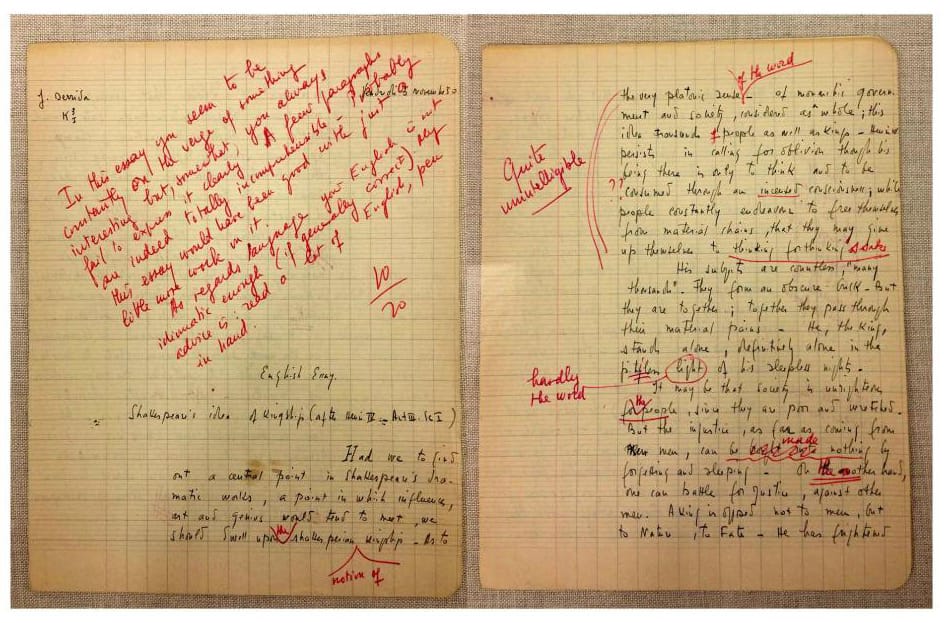 J. Derrida
K
In this essay you seem to be
constantly on the verge of something
interesting but, somewhat, you always
fail to express it clearly. A few paragraphs
are indeed totally incomprehensible – probably
this essay would have been good with just a
little more work in it.
As regards language your English is not
idiomatic enough (if generally correct) my
advice is: read a lot of English, pen
in hand.
10
20
English Essay.
Shakespeare's idea of Kingship (after Henri IV = Act III. Sc I)
Had we to find
out a central point in Shakespeare's dra-
matic works, a point in which influence,
art and genius would tend to meet, we
the
should dwell upon shakespearian kingship. As to
notion of
of the word
the very platonic sense - of monarchic govern-
ment and society, considered as a whole; this
idea transcends people as well as kings -
persists in calling for oblivion though his
being there is only to think and to be
consumed through an incensed consciousness; while
people constantly endeavour to free themselves
from material chains, that they may give
up themselves to thinking for thinking's sake
Quite
unintelligible
??
His subjects are countless, "many
thousands". They form an obscure bulk - But
they are together; together they pass through
their material pains - He, the King,
stands alone, definitively alone in the
pitiless light of his sleepless nights -
hardly
the word
It may be that society is unrighteous
the
for people, since they are poor and wretched.
But the injustice, as far as coming from
made
men, can be nothing by
forgetting and sleeping - On the another hand,
one can battle for Justice, against other
men. A King is opposed not to men, but
to Nature, to Fate - He has frightened